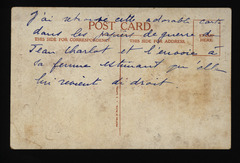 J'ai retrouvé cette adorable carte
POST CARD.
dans les papiers de guerre de
THIS SIDE FOR CORRESPONDENCE. THIS SIDE FOR ADDRESS. HERE.
Jean Charlot et l'envoie à
sa femme estimant qu'elle
lui revient de droit